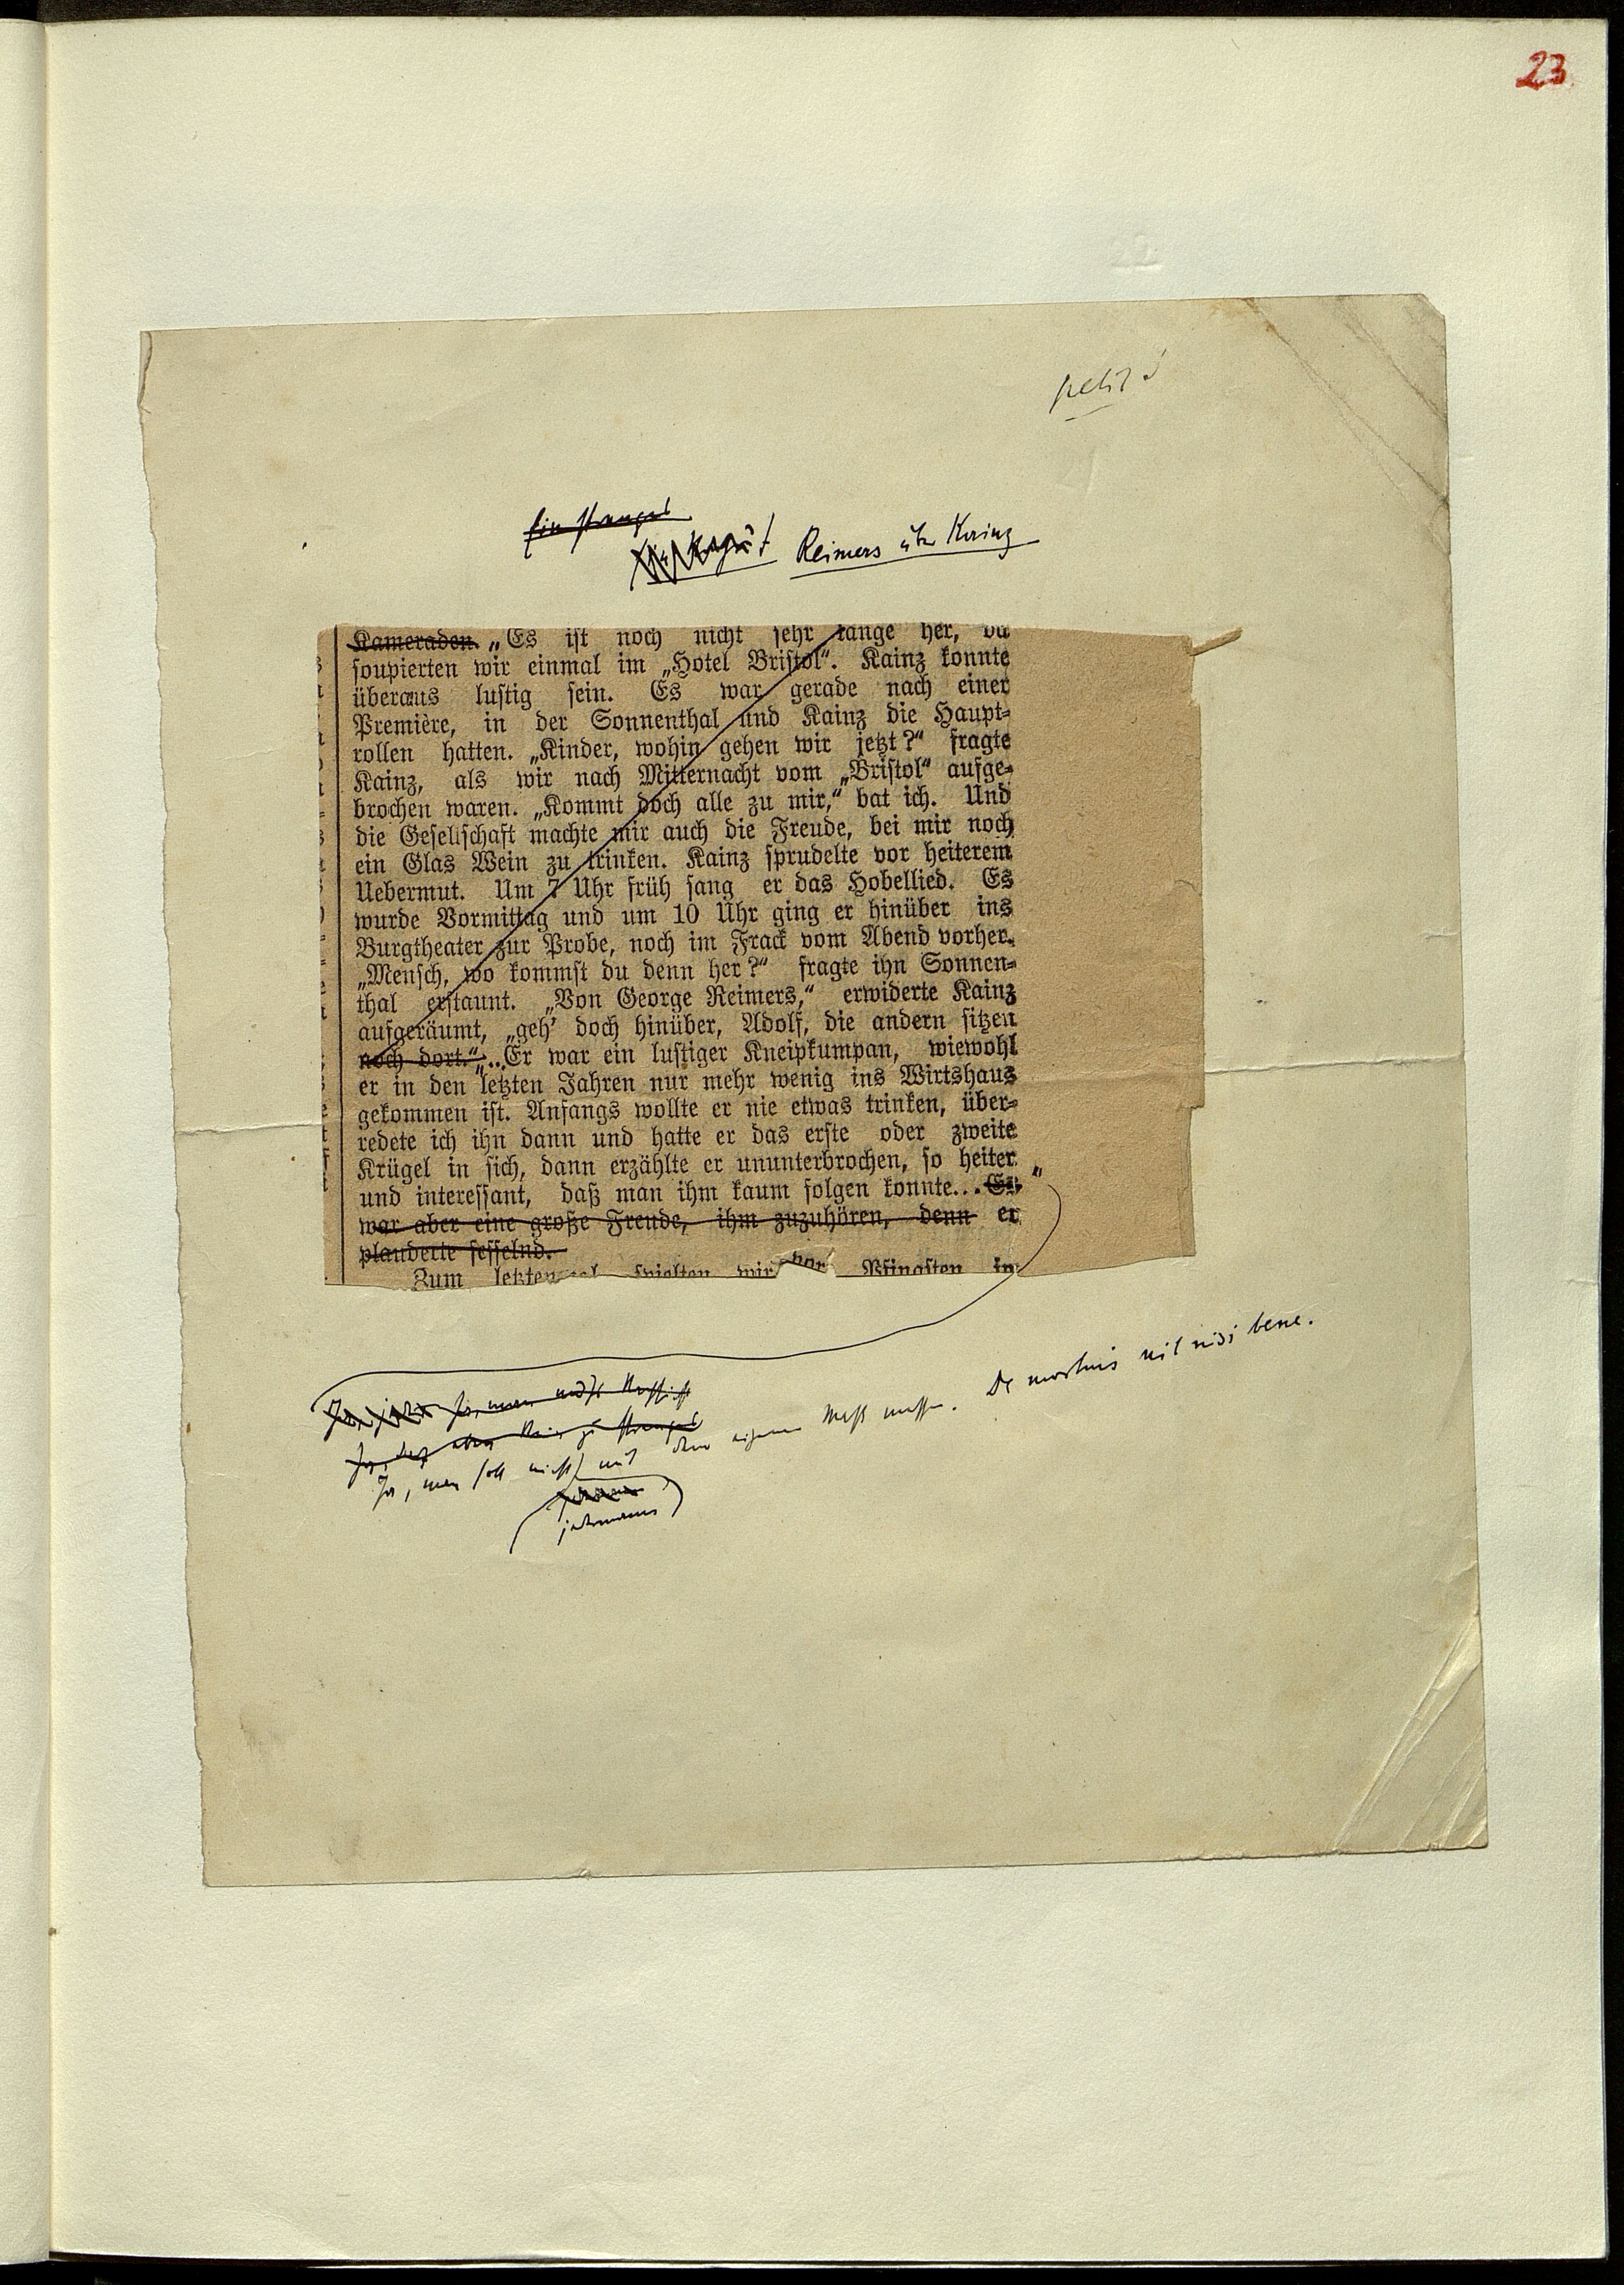 23
Reimers über Kainz
Kameraden. „Es ist noch nicht sehr lange her, da
soupierten wir einmal im „Hotel Bristol“. Kainz konnte
überaus lustig sein. Es war gerade nach einer
Première, in der Sonnenthal und Kainz die Haupt-
rollen hatten. „Kinder, wohin gehen wir jetzt?“ fragte
Kainz, als wir nach Mitternacht vom „Bristol“ aufge-
brochen waren. „Kommt doch alle zu mir,“ bat ich. Und
die Gesellschaft machte mir auch die Freude, bei mir noch
ein Glas Wein zu trinken. Kainz sprudelte vor heiterem
Uebermut. Um 7 Uhr früh sang er das Hobellied. Es
wurde Vormittag und um 10 Uhr ging er hinüber ins
Burgtheater zur Probe, noch im Frack vom Abend vorher.
„Mensch, wo kommst du denn her?“ fragte ihn Sonnen-
thal erstaunt. „Von George Reimers,“ erwiderte Kainz
aufgeräumt, „geh' doch hinüber, Adolf, die andern sitzen
noch dort.“ „... Er war ein lustiger Kneipkumpan, wiewohl
er in den letzten Jahren nur mehr wenig ins Wirtshaus
gekommen ist. Anfangs wollte er nie etwas trinken, über-
redete ich ihn dann und hatte er das erste oder zweite
Krügel in sich, dann erzählte er ununterbrochen, so heiter
und interessant, daß man ihm kaum folgen konnte... Es “
war aber eine große Freude, ihm zuzuhören, denn er
plauderte fesselnd.
Zum letzten spielten wir vor Pfingsten in
Ja, man soll nicht mit dem eigenen Maß messen. De mortuis nil nisi bene.